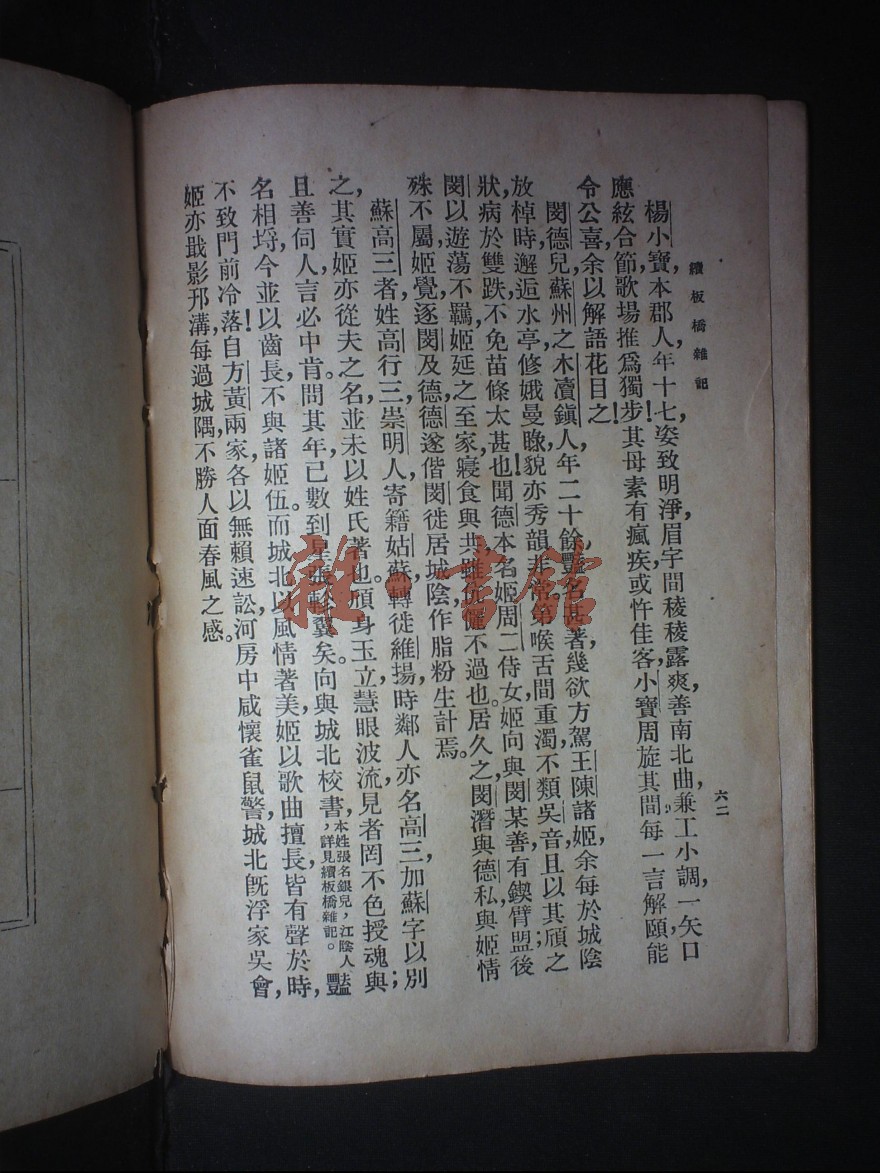 續板橋雜記
六二
楊小寶，本郡人，年十七，姿致明淨，眉宇間稜稜露爽，善南北曲，兼工小調，一矢口，
應絃合節，歌場推爲獨步！其母素有瘋疾，或忤佳客，小寶周旋其間，每一言解頤，能
令公喜，余以解語花目之！
閔德兒，蘇州之木瀆鎭人，年二十餘，豔名甚著，幾欲方駕王陳諸姬，余每於城陰
放棹時，邂逅水亭，修娥曼睩，貌亦秀韻非常，第喉舌間重濁，不類吳音，且以其頎之
狀，病於雙趺，不免苗條太甚也！聞德本名姬周二侍女，姬向與閔某善，有鍥臂盟，後
閔以遊蕩不羈，姬延之至家，寢食與共，雖伉儷不過也。居久之，閔潛與德私，與姬情
殊不屬，姬覺，逐閔及德，德遂偕閔徙居城陰，作脂粉生計焉。
蘇高三者，姓高行三，崇明人，寄籍姑蘇，轉徙維揚，時鄰人亦名高三，加蘇字以別
之，其實姬亦從夫之名，並未以姓氏著也。頎身玉立，慧眼波流，見者罔不色授魂與，
且善伺人，言必中肯。問其年，已數到星張軫翼矣。向與城北校書，本姓張名銀兒，江陰人，詳見續板橋雜記。豔
名相埒，今並以齒長，不與諸姬伍。而城北以風情著美，姬以歌曲擅長，皆有聲於時，
不致門前冷落！自方黃兩家各以無賴速訟，河房中咸懷雀鼠警，城北旣浮家吳會，
姬亦戢影邗溝，每過城隅，不勝人面春風之感。
雜·書館